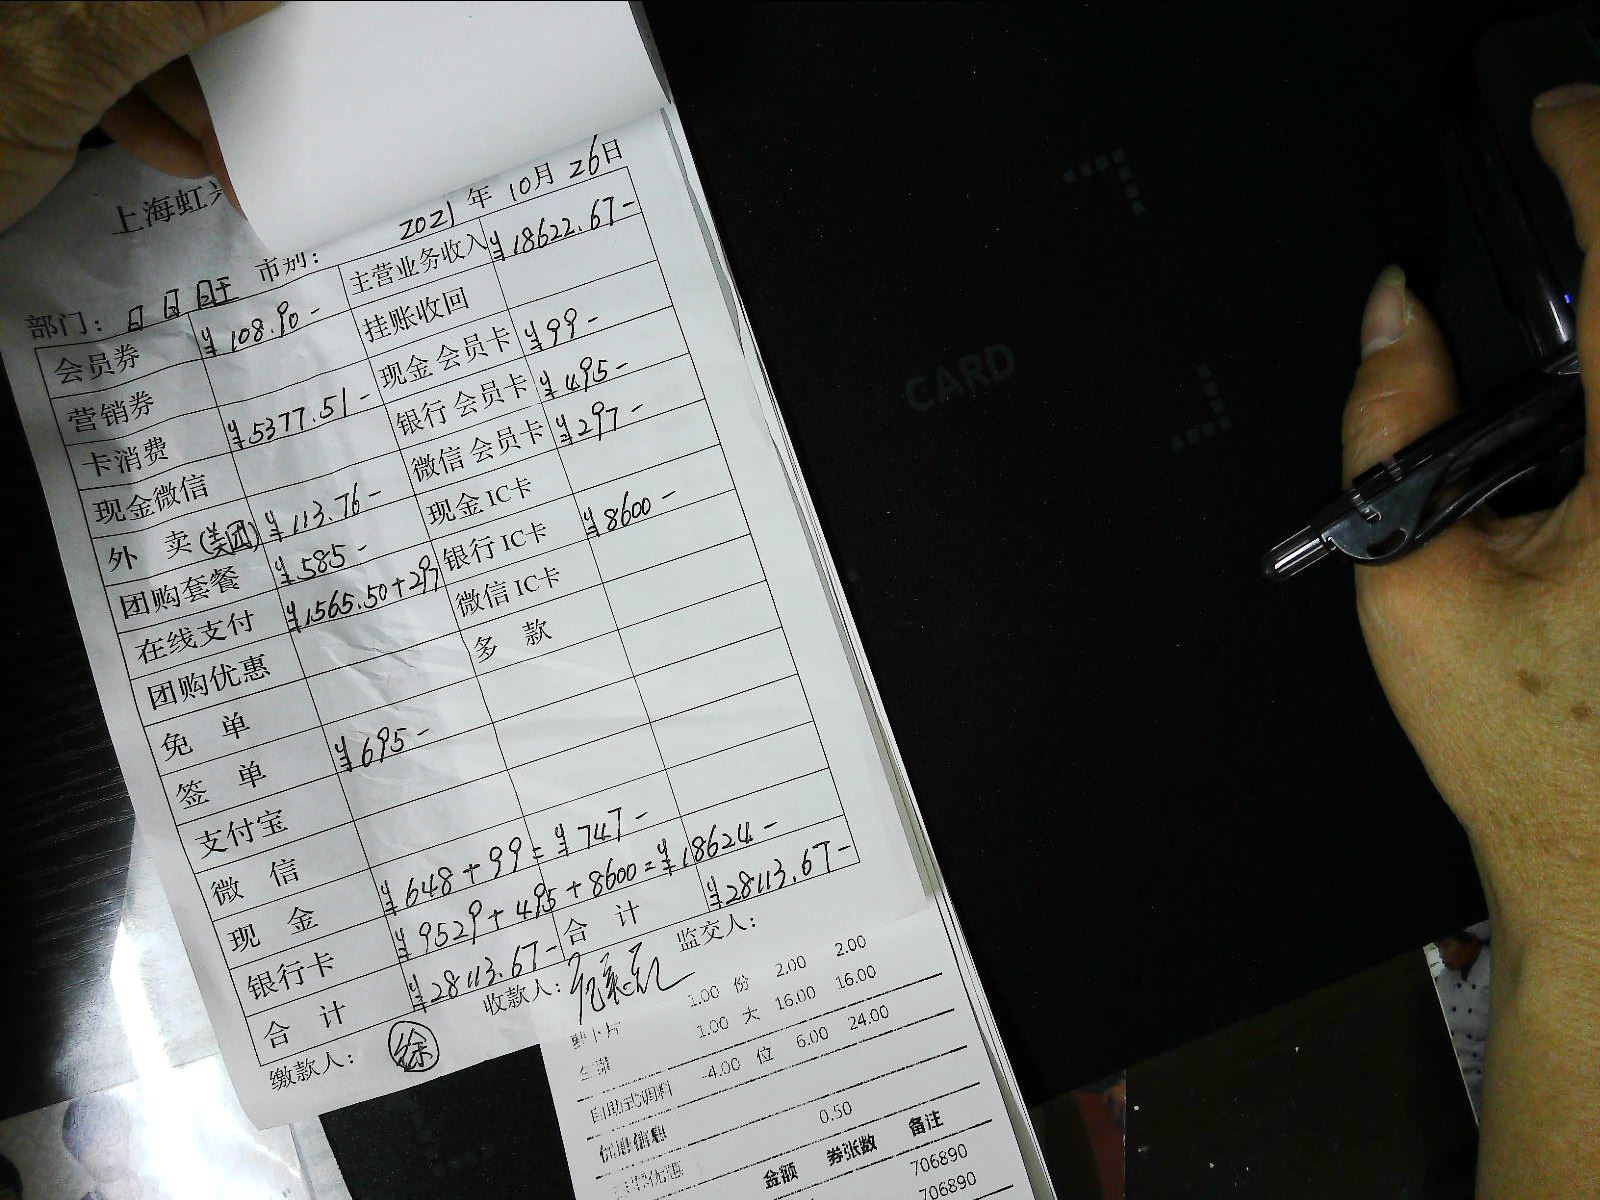 上海虹
2021年10月26日
部门：日月旺 市别：
会员券 ¥108.90- 主营业务收入 ¥18622.67-
营销券 挂账收回
卡消费 ¥5377.51- 现金会员卡 ¥99-
现金微信 银行会员卡 ¥495-
外 卖(美团) ¥113.76- 微信会员卡 ¥297-
团购套餐 ¥585- 现金IC卡
在线支付 ¥1565.50+297 银行IC卡 ¥8600-
团购优惠 微信IC卡
免 单 多 款
签 单 ¥695-
支付宝
微 信
现 金 ¥648+99=¥747-
银行卡 ¥9529+495+8600=¥18624-
合 计 ¥28113.67- 合 计 ¥28113.67-
缴款人： 徐 收款人： 监交人：
萝卜片 1.00 份 2.00 2.00
1.00 大 16.00 16.00
自助式调料 -4.00 位 6.00 24.00
优惠信息
0.50
金额 券张数 备注
706890
706890
CARD